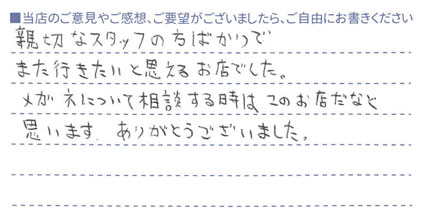 ■当店のご意見やご感想、ご要望がございましたら、ご自由にお書きください
親切なスタッフの方ばかりで
また行きたいと思えるお店でした。
メガネについて相談する時は、このお店だなと
思います。ありがとうございました。